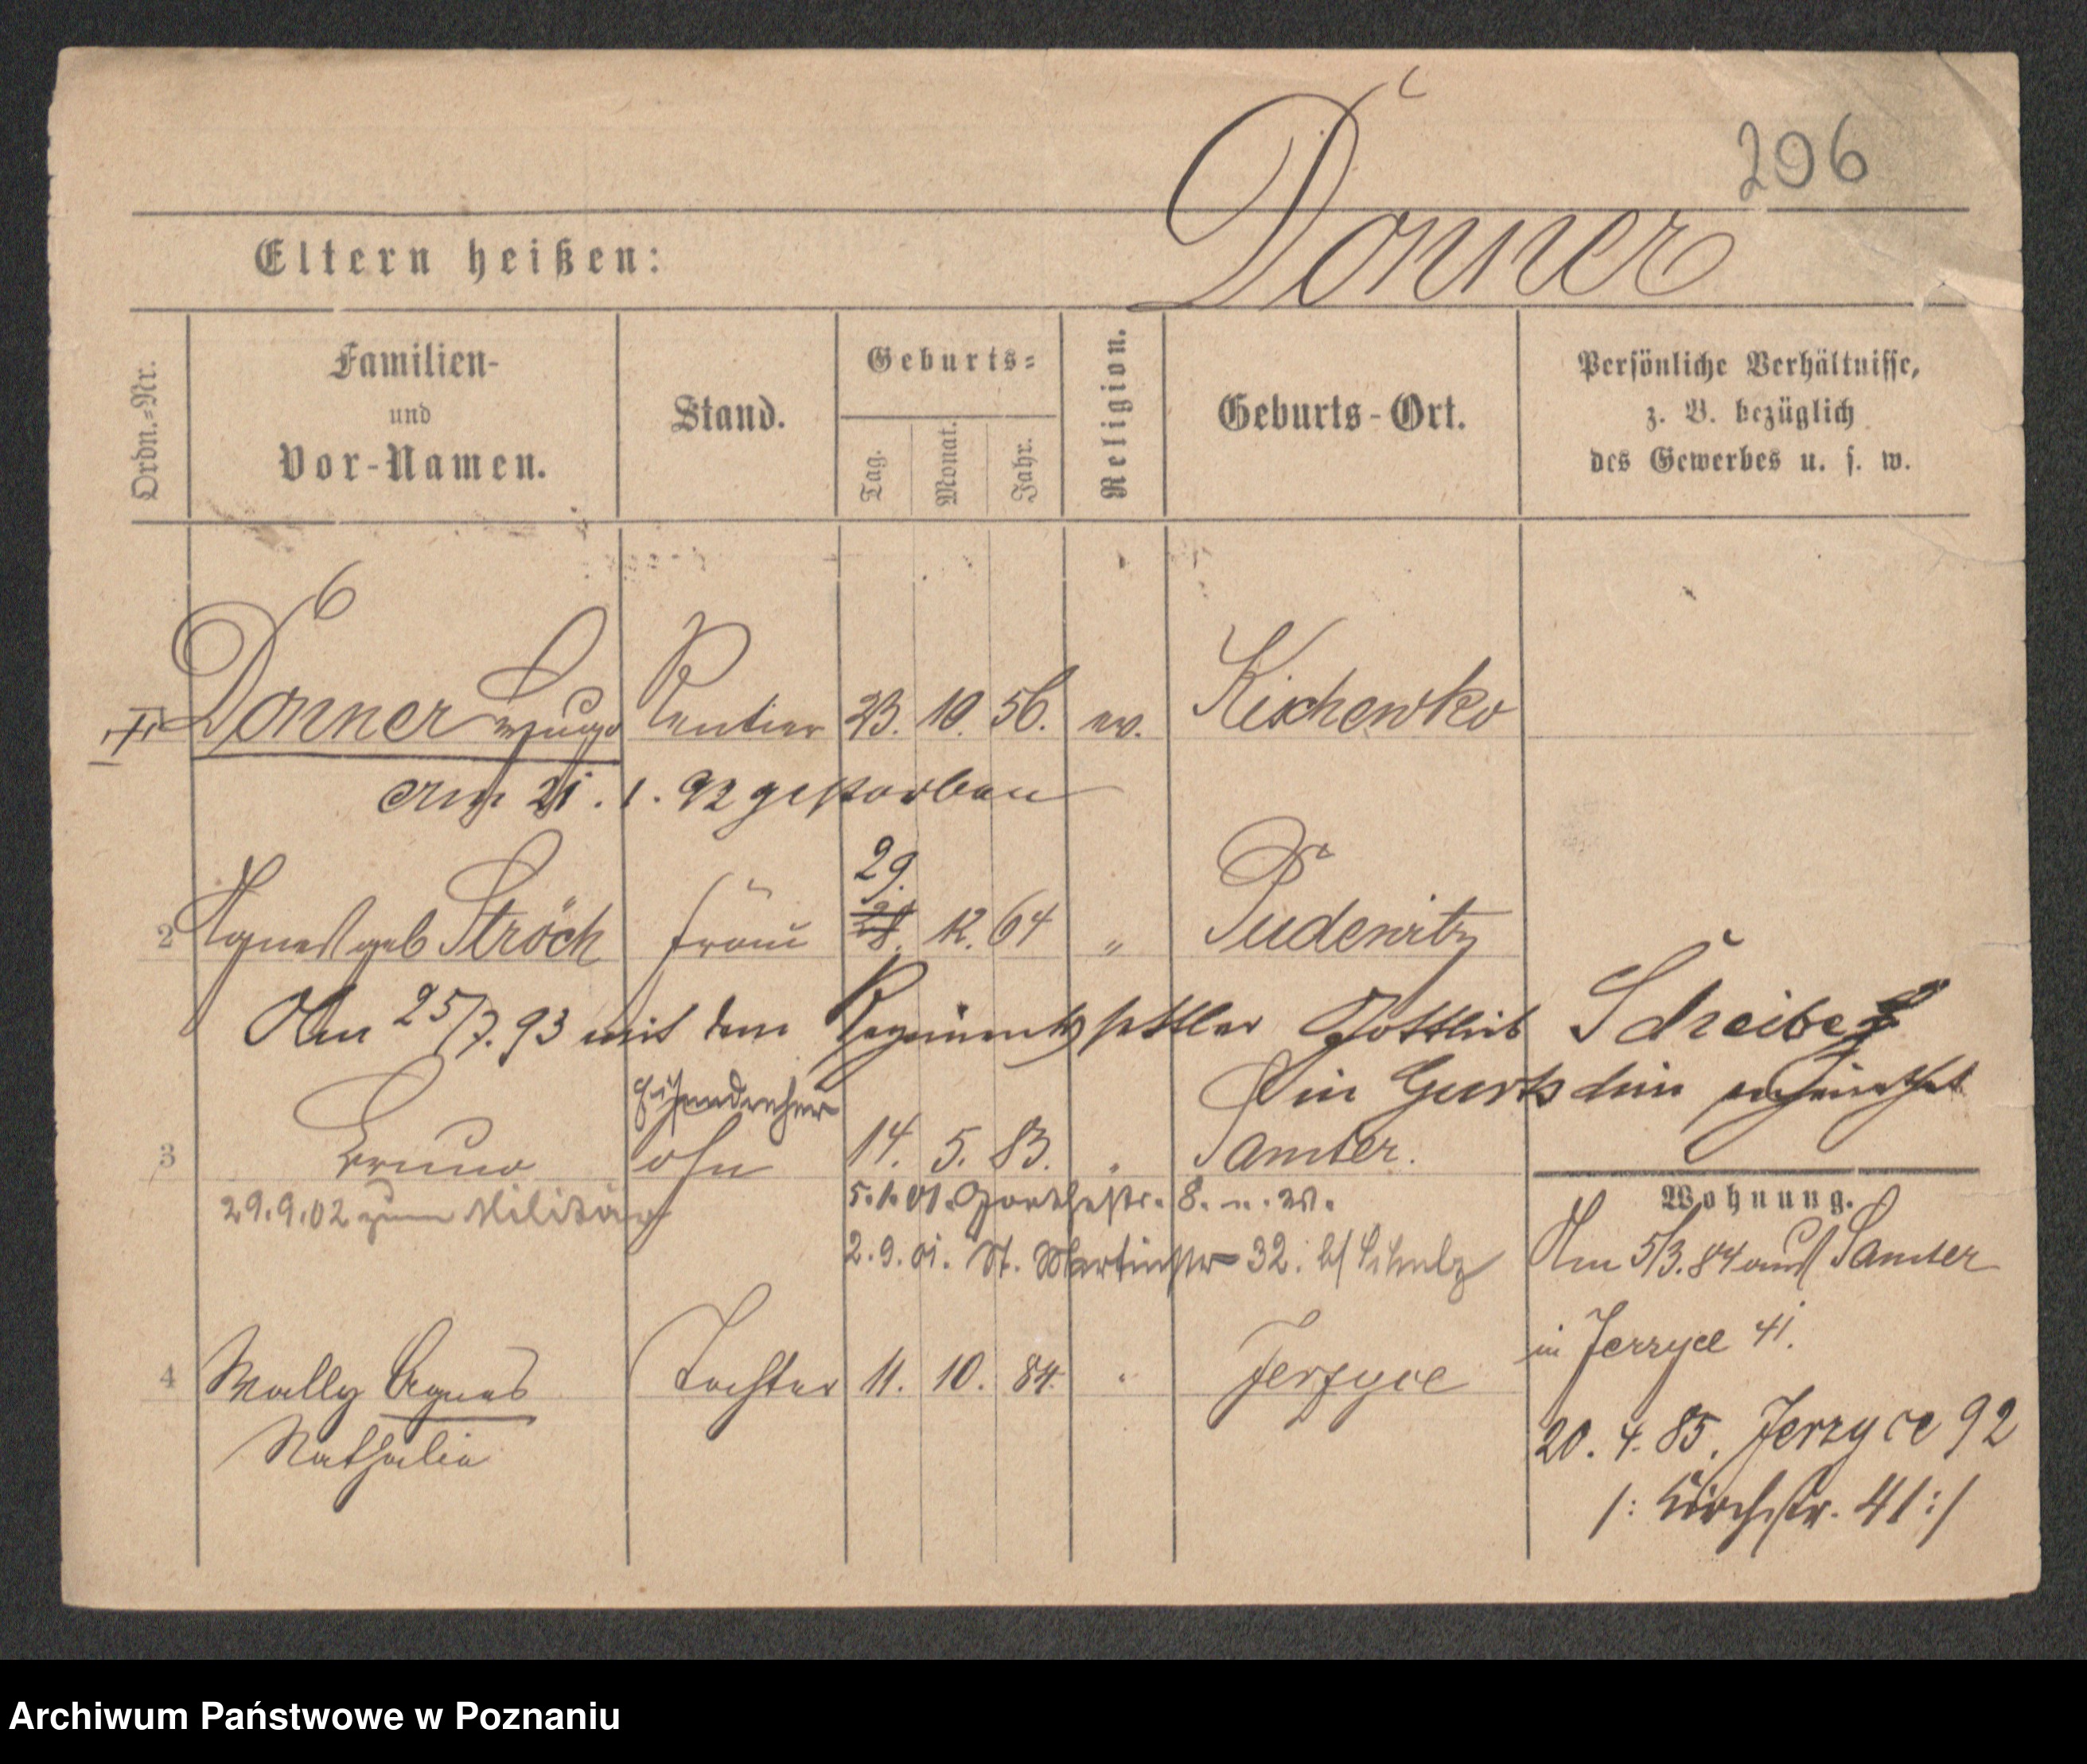 296
Donner
Eltern heißen:
Ordn.=Nr.
Familien- und Vor-Namen.
Stand.
Geburts=
Tag.
Monat.
Jahr.
Religion.
Geburts-Ort.
Persönliche Verhältnisse,
z. B. bezüglich
des Gewerbes u. s. w.
Donner Hugo Rentier 23. 10. 56. ev. Kischewko
am 21. 1. 92 gestorben
29.
2 Agnes geb Ströch Frau 28. 12. 64 " Pudewitz
Am 25/7. 93 mit dem Regimentssattler Gottlieb Schreiber
in verheirathet
Eisendreher
3 Bruno Sohn 14. 5. 83. " Samter.
29.9.02 zum Militär
5.1.01. 8. n. W.
2.9.01. St. Martinstr 32. b/ Schulz
Wohnung.
Am 5/3. 84 aus Samter
in Jerzyce 41.
4 Wally Agnes Tochter 11. 10. 84. " Jerzyce
Nathalie
20. 4. 85. Jerzyce 92
/: Kirchstr. 41 :/
Archiwum Państwowe w Poznaniu